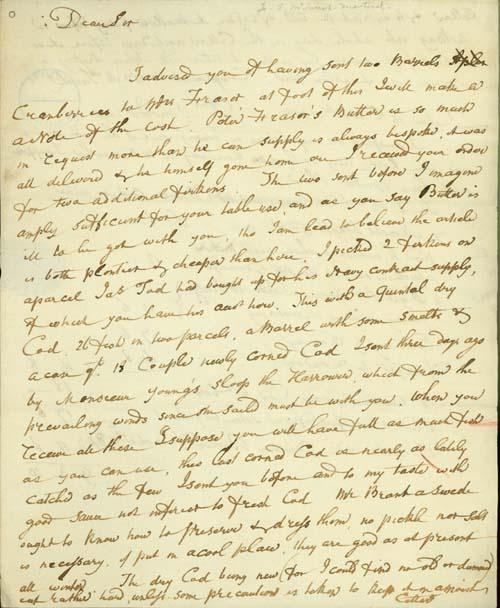 Dear Sir
I advised you of having sent two Barrels
Cranberries to Mrs Fraser at foot of this I will make a
a Note of the Cost. Peter Fraser's Butter is so much
in request more than he can supply is always bespoke, it was
all delivered & he himself gone home ere I received your order
for two additional firkins. The two sent before I imagine
amply sufficient for your table use, and as you say Butter is
ill to be got with you, tho I am lead to believe the article
is both plentier & cheaper than here. I picked 2 firkins on
a parcel Jas Tod had bought up for his Navy contract supply,
of which you have his acct now. This with a Quintal dry
Cod. 20 fish in two parcels, a Barrel with some Smelts &
a case qt. 18 Couple newly corned Cod I sent three days ago
by Monsieur Young's Sloop the Harrower, which from the
prevailing winds since she sail'd must be with you. When you
receive all these I suppose you will have full as much fish
as you can use, this last corned Cod is nearly as lately
catch'd as the few I sent you before and to my taste with
good sauce not inferior to fresh Cod. Mr Brant a Swede
ought to know how to preserve & dress them, no pickle nor Salt
is necessary, if put in a cool place, they are good as at present
all winter. The dry Cod being new (for I could find no old or
eat rather hard, unless some precaution is taken to keep it in a moist
Cellar